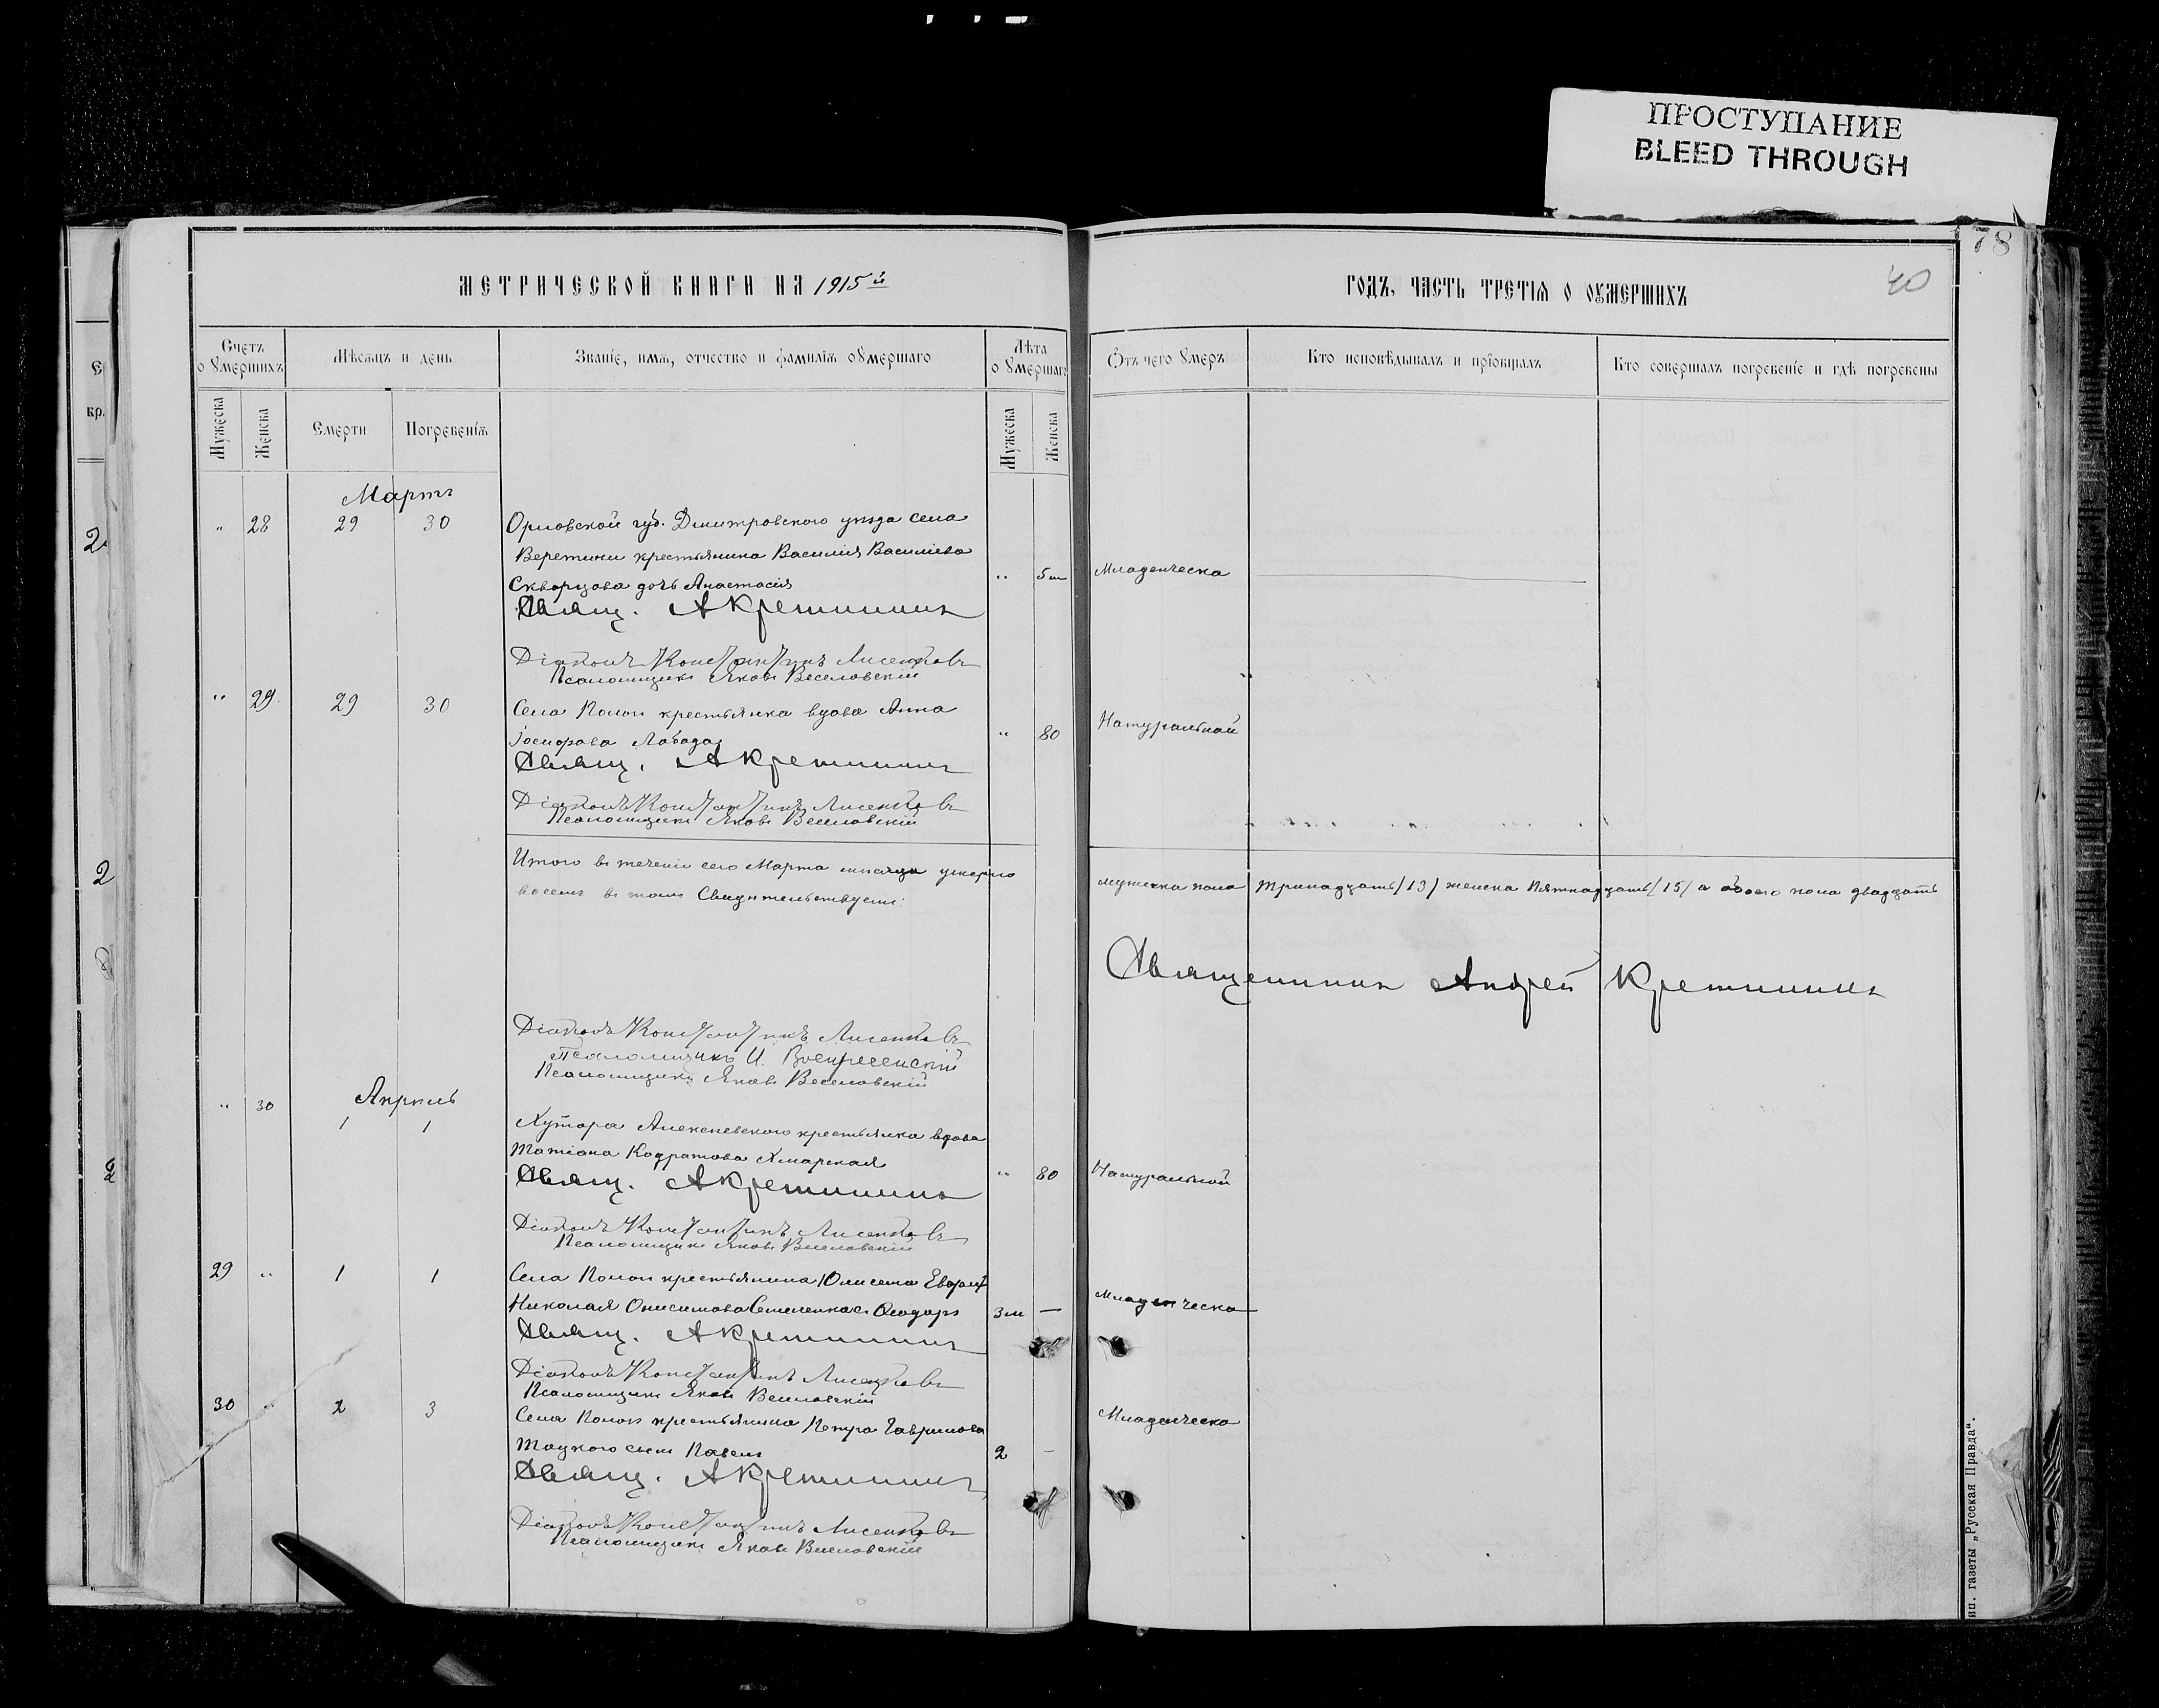 ПРОСТУПАНИЕ
BLEED THROUGH
78
40
МЕТРИЧЕСКОЙ КНИГИ НА 1915й
ГОДЪ, ЧАСТЬ ТРЕТІЯ О ОУМЕРШИХЪ
Счетъ о умершихъ
Мѣсяцъ и день
Званіе, имя, отчество и фамилія оумершаго
Лѣта о умершаго
Отъ чего умеръ
Кто исповѣдывалъ и пріобщалъ
Кто совершалъ погребеніе и гдѣ погребены
Мужеска
Женска
Смерти
Погребенія
Мужеска
Женска
Мартъ
28 29 30 Орловской губ. Дмитровского уѣзда села
крестьянина Василія Васильева
Скворцова дочь Анастасія 5 м Младенческа
Свящ. А Кретининъ
Діаконъ Константинъ Лисенковъ
Псаломщикъ Яковъ Веселовскій
29 29 30 Села крестьянка вдова Анна
80 Натуральной
Свящ. А Кретининъ
Діаконъ Константинъ Лисенковъ
Псаломщикъ Яковъ Веселовскій
Итого въ теченіи сего Марта мѣсяца умерло
мужеска пола тринадцать /13/ женска пятнадцать /15/ а обоего пола двадцать
восемь въ томъ Свидѣтельствуемъ:
Священникъ Андрей Кретининъ
Діаконъ Константинъ Лисенковъ
Псаломщикъ И. Воскресенскій
Псаломщикъ Яковъ Веселовскій
Апрѣль
30 1 1 Хутора Алексѣевского крестьянка вдова
Татіана Кодратова 80 Натуральной
Свящ. А Кретининъ
Діаконъ Константинъ Лисенковъ
Псаломщикъ Яковъ Веселовскій
29 1 1 Села крестьянина
Николая Онисимова Ѳеодоръ 3 м — Младенческа
Свящ. А Кретининъ
Діаконъ Константинъ Лисенковъ
Псаломщикъ Яковъ Веселовскій
30 2 3 Села крестьянина Петра Гаврилова
сынъ Павелъ 2 - Младенческа
Свящ. А Кретининъ
Діаконъ Константинъ Лисенковъ
Псаломщикъ Яковъ Веселовскій
ип. газеты „Русская Правда“.